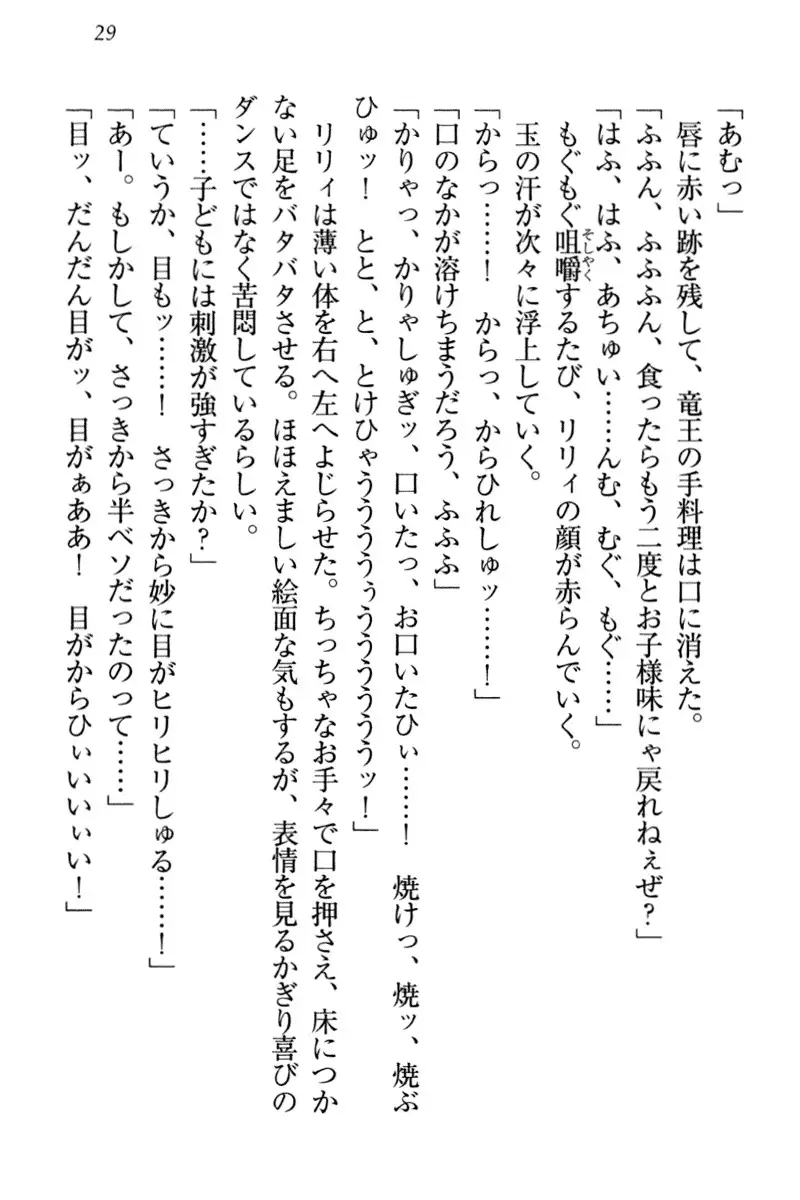 29
「あむっ」
唇に赤い跡を残して、竜王の手料理は口に消えた。
「ふふん、ふふふん、食ったらもう二度とお子様味にゃ戻れねぇぜ？」
「はふ、はふ、あちゅい……んむ、むぐ、もぐ……」
もぐもぐ咀嚼するたび、リリィの顔が赤らんでいく。
玉の汗が次々に浮上していく。
「からっ……！　からっ、からひれしゅッ……！」
「口のなかが溶けちまうだろう、ふふふ」
「かりゃっ、かりゃしゅぎッ、口いたっ、お口いたひぃ……！　焼けっ、焼ッ、焼ぶ
ひゅッ！　とと、と、とけひゃうううぅうううううッ！」
リリィは薄い体を右へ左へよじらせた。ちっちゃなお手々で口を押さえ、床につか
ない足をバタバタさせる。ほほえましい絵面な気もするが、表情を見るかぎり喜びの
ダンスではなく苦悶しているらしい。
「……子どもには刺激が強すぎたか？」
「ていうか、目もッ……！　さっきから妙に目がヒリヒリしゅる……！」
「あー。もしかして、さっきから半ベソだったのって……」
「目ッ、だんだん目がッ、目がぁああ！　目がからひぃいいぃい！」